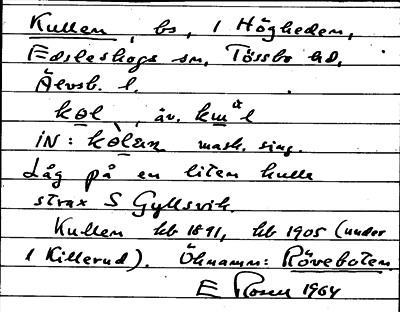 Kullen, bs, 1 Högheden,
Edsleskogs sn, Tössbo hd,
Älvsb. l.
kol, äv.
iN: mask. sing.
Låg på en liten kulle
strax S Gyllsvik.
Kullen hb 1891, hb 1905 (under
1 Killerud). Öknamn: Röveboten
E Rosen 1964